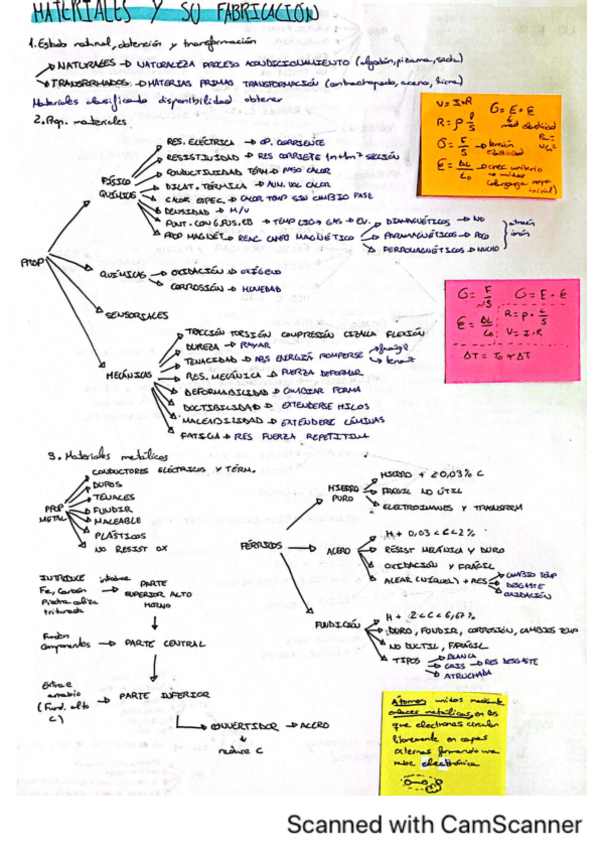 MATERIALES Y SU FABRICACIÓN
1. Estado natural, obtención y transformación
NATURALES → NATURALEZA PROCESO ACONDICIONAMIENTO (algodón, pizarra, seda)
TRANSFORMADOS → MATERIAS PRIMAS TRANSFORMACIÓN (contrachapado, acero,
Materiales clasificando disponibilidad obtener
2. Prop. materiales
V = I·R
σ = E·ε
R = ρ l/S
mod elasticidad
σ = F/S → tensión
elasticidad
ε = ΔL/L₀ → crec. unitario
PROP
FÍSICO
QUÍMICOS
RES. ELÉCTRICA → OP. CORRIENTE
RESISTIVIDAD → RES CORRIETE 1m + 1m² SECCIÓN
CONDUCTIVIDAD TÉRM → PASO CALOR
DILAT. TÉRMICA → AUM. VOL CALOR
CALOR ESPEC. → CALOR TEMP SIN CAMBIO FASE
DENSIDAD → M/V
PUNT. CONG, FUS, EB → TEMP LIQ → GAS → EV.
PROP MAGNÉT → REAC CAMPO MAGNÉTICO
DIAMAGNÉTICOS → NO
PARAMAGNÉTICOS → POCO
FERROMAGNÉTICOS → MUCHO
atraen
imán
QUÍMICAS → OXIDACIÓN → OXÍGENO
CORROSIÓN → HUMEDAD
SENSORIALES
σ = F/S
σ = E·ε
ε = ΔL/L₀
R = ρ· L/S
V = I·R
MECÁNICAS
TRACCIÓN TORSIÓN COMPRESIÓN CIZALLA FLEXIÓN
DUREZA → RAYAR
TENACIDAD → ABS ENERGÍA ROMPERSE → frágil
→ tenaz
RES. MECÁNICA → FUERZA DEFORMAR
DEFORMABILIDAD → CAMBIAR FORMA
DUCTIBILIDAD → EXTENDERSE HILOS
MALEABILIDAD → EXTENDERSE LÁMINAS
FATIGA → RES FUERZA REPETITIVA
3. Materiales metálicos
PROP
METAL
CONDUCTORES ELÉCTRICOS Y TÉRM.
DUROS
TENACES
FUNDIR
MALEABLE
PLÁSTICOS
NO RESIST OX
FÉRRICOS
HIERRO
PURO
HIERRO + <0,03% C
FRÁGIL NO ÚTIL
ELECTROIMANES Y TRANSFORM
ACERO
H + 0,03 < C < 2%
RESIST MECÁNICA Y DURO
OXIDACIÓN Y FRÁGIL
ALEAR (NIQUEL) + RES
CAMBIO TEMP
DESGASTE
OXIDACIÓN
FUNDICIÓN
H + 2 < C < 6,67%
DURO, FUNDIR, CORROSIÓN, CAMBIOS TEMP
NO DUCTIL, FRÁGIL
TIPOS → BLANCA
GRIS → RES DESGASTE
ATRUCHADA
INTRODUCE
Fe, Carbón
Piedra caliza
triturada
introduce
PARTE
SUPERIOR ALTO
HORNO
Fusión
componentes → PARTE CENTRAL
Extrae
arrabio
(Fund. alto
C)
→ PARTE INFERIOR
CONVERTIDOR → ACERO
reduce C
Átomos unidos mediante
enlaces metálicos, en los
que electrones circulan
libremente en capas
externas formando una
nube electrónica
Scanned with CamScanner